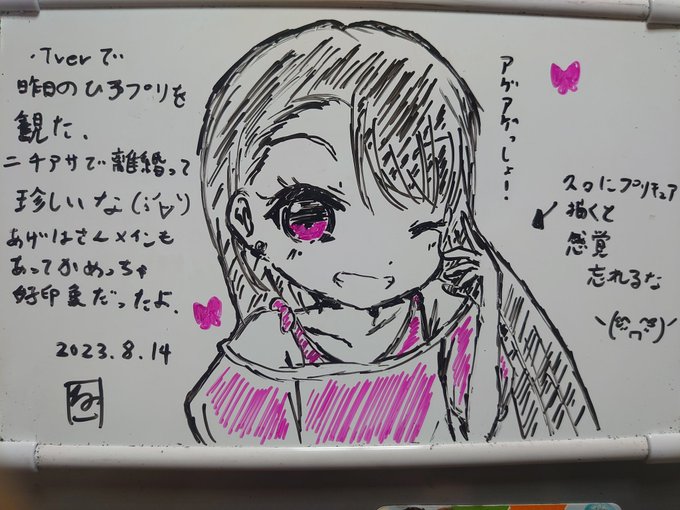 ・Tverで
昨日のひろプリを
観た、
ニチアサで離婚って
珍しいな(;´∀`)
あげはさんメインも
あってかめっちゃ
好印象だったよ、
2023.8.14
アゲアゲっしょ!
久々にプリキュア
描くと
感覚
忘れるな